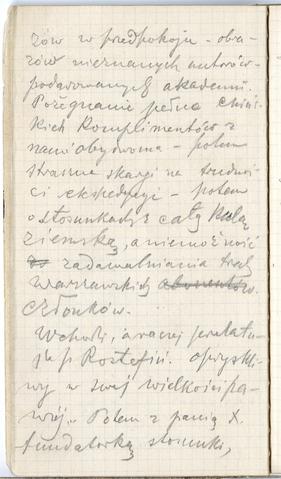 zów w przedpokoju – obra-
zów nieznanych autorów –
podarowanych akademii.
Pożegnanie pełne chiń-
skich komplimentów z
nami obydwoma – potem
straszne skargi na trudnoś-
ci ekspedycyi – potem
o stosunkach z całą kulą
ziemską, a niemożność
zadawalniania tych
warszawskich
członków.
Wchodzi, a raczej przelatu-
je p. Opryskli-
wy w swej wielkości pa-
wiej.. Potem z panią X.
fundatorką stosunki,